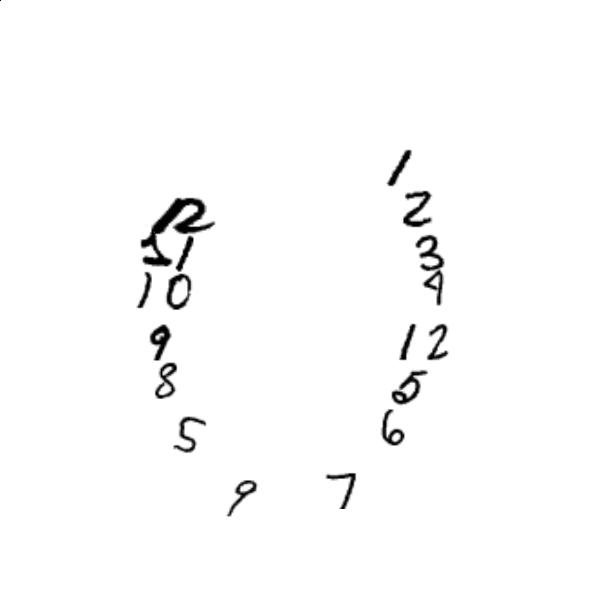 1
2
3
4
12
5
6
7
9
5
8
9
10
11
12